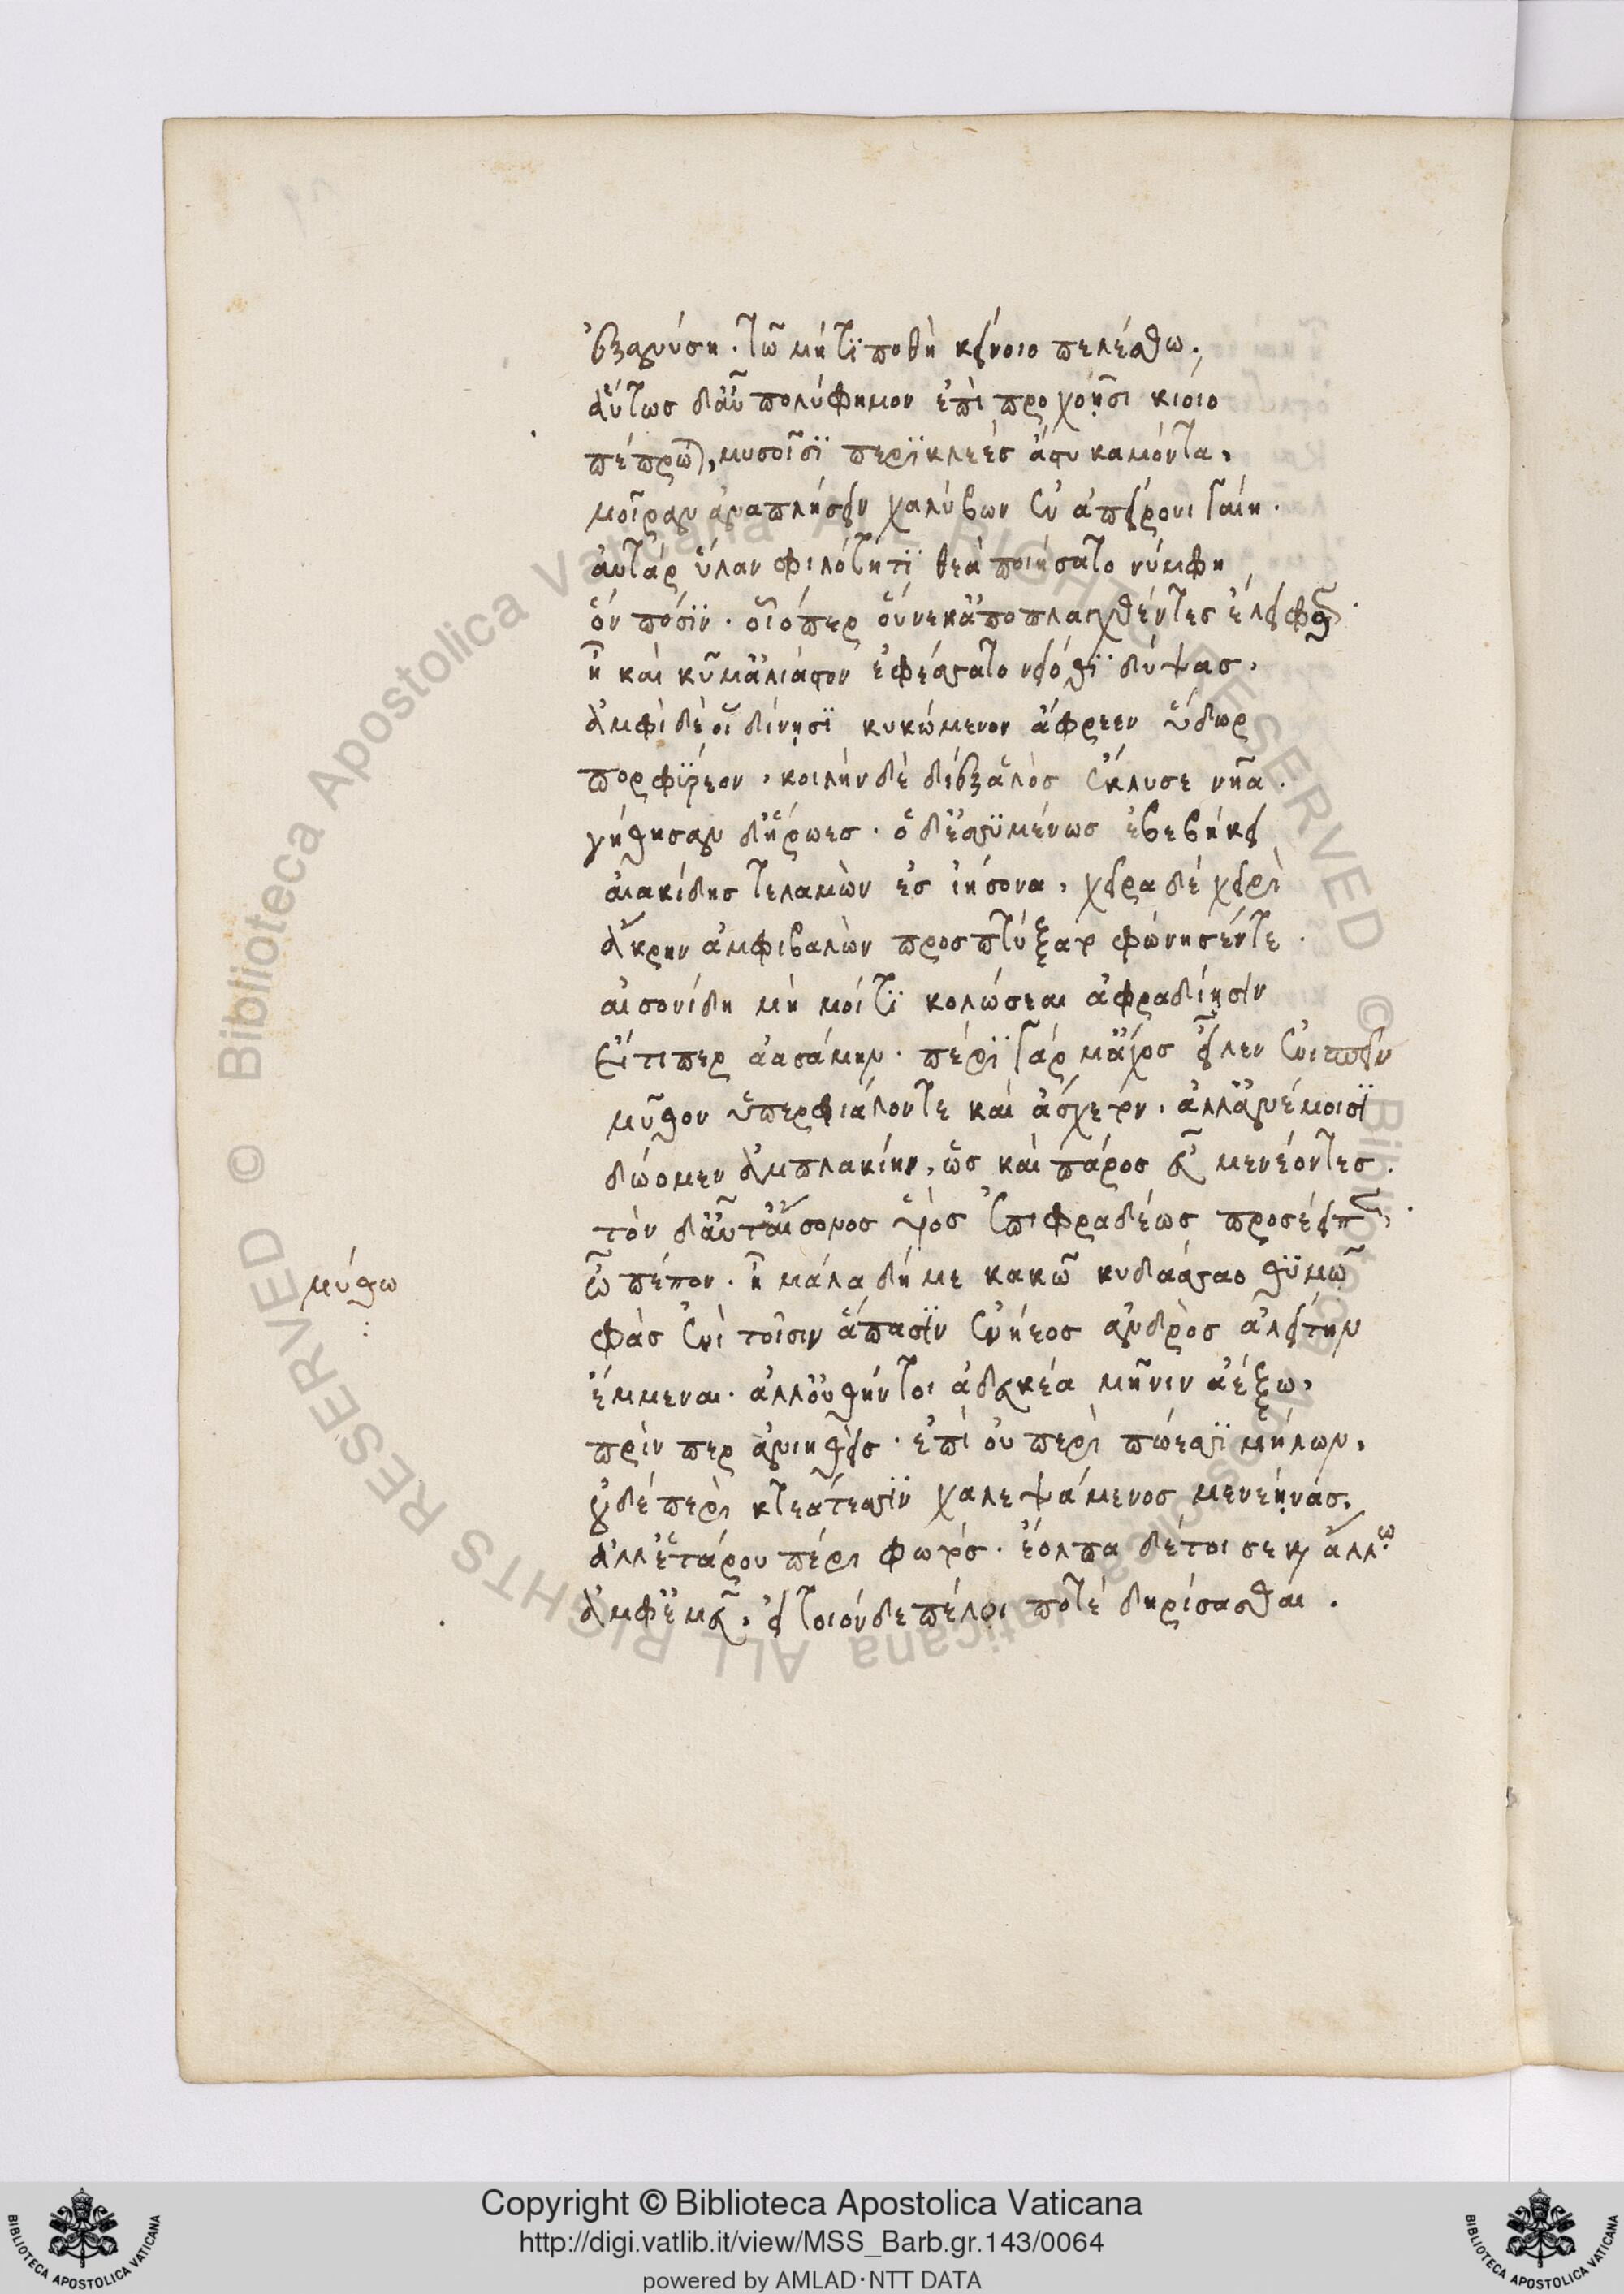 ἐξανύση. τῶ μήτϊ ποθὴ κείνοιο πελέσθω.
ἀύτως δ'αὖ πολύφημον ἐπὶ προχόῃσι κίοιο
πέπρωται, μυσοῖσϊ περϊκλεὲς ἄστυ καμόντα,
μοῖραν ἀναπλήσειν χαλύβων ἐν ἀπείρονι γαίη.
ἀυτὰρ ὕλαν φιλότητϊ θεὰ ποιήσατο νύμφη
ὃν πόσϊν. οἷό περ οὕνεκ' ἀποπλαγχθέντες ἔλειφθεν.
ἦ καὶ κῦμ' ἀλιαστον ἐφέσσατο νειόθϊ δύψας.
ἀμφὶ δὲ οἷ δίνῃσϊ κυκώμενον ἄφρεεν ὕδωρ
πορφύρεον, κοιλὴν δὲ διὲξ ἁλὸς ἔκλυσε νῆα.
γήθησαν δ' ἥρωες. ὁ δ' ἐσσϋμένως ἐβεβήκει
ἀιακίδης τελαμὼν ἐς ἰήσονα, χεῖρα δὲ χειρὶ
ἄκρην ἀμφιβαλὼν προσπτύξατο φώνησέν τε.
αἰσονίδη μὴ μοί τϊ χολώσεαι ἀφραδίῃσϊν
εἴ τι περ ἀασάμην. πέρϊ γάρ μ' ἄχος εἷλεν ἐνισπεῖν
μῦθον ὑπερφίαλόν τε καὶ ἄσχετον. ἀλλ' ἀνέμοισϊ
δώομεν ἀμπλακίην, ὡς καὶ πάρος εὐμενέοντες.
τὸν δ' αὖτ' αἴσονος υἱὸς ἐπιφραδέως προσέειπεν.
ὦ πέπον. ἦ μάλα δή με κακῶ κυδάσσαο θϋμῶ
μύθω
φὰς ἐνὶ τοῖσιν ἅπασϊν ἐνηέος ἀνδρὸς ἀλείτην
ἔμμεναι. ἀλλ' οὐ θήν τοι ἀδευκέα μῆνιν ἀέξω,
πρίν περ ἀνιηθείς. ἐπὶ οὐ περὶ πώεσϊ μήλων,
οὐδὲ περὶ κτεάτεσσϊν χαλεψάμενος μενέῃνας.
ἀλλ' ἑτάρου πέρι φωτός. ἔολπα δέ τοι σε καὶ ἄλλω
ἀμφ' ἐμεῦ, εἰ τοιόνδε πέλοι ποτὲ δηρίσασθαι.
Copyright © Biblioteca Apostolica Vaticana
http://digi.vatlib.it/view/MSS_Barb.gr.143/0064
powered by AMLAD·NTT DATA